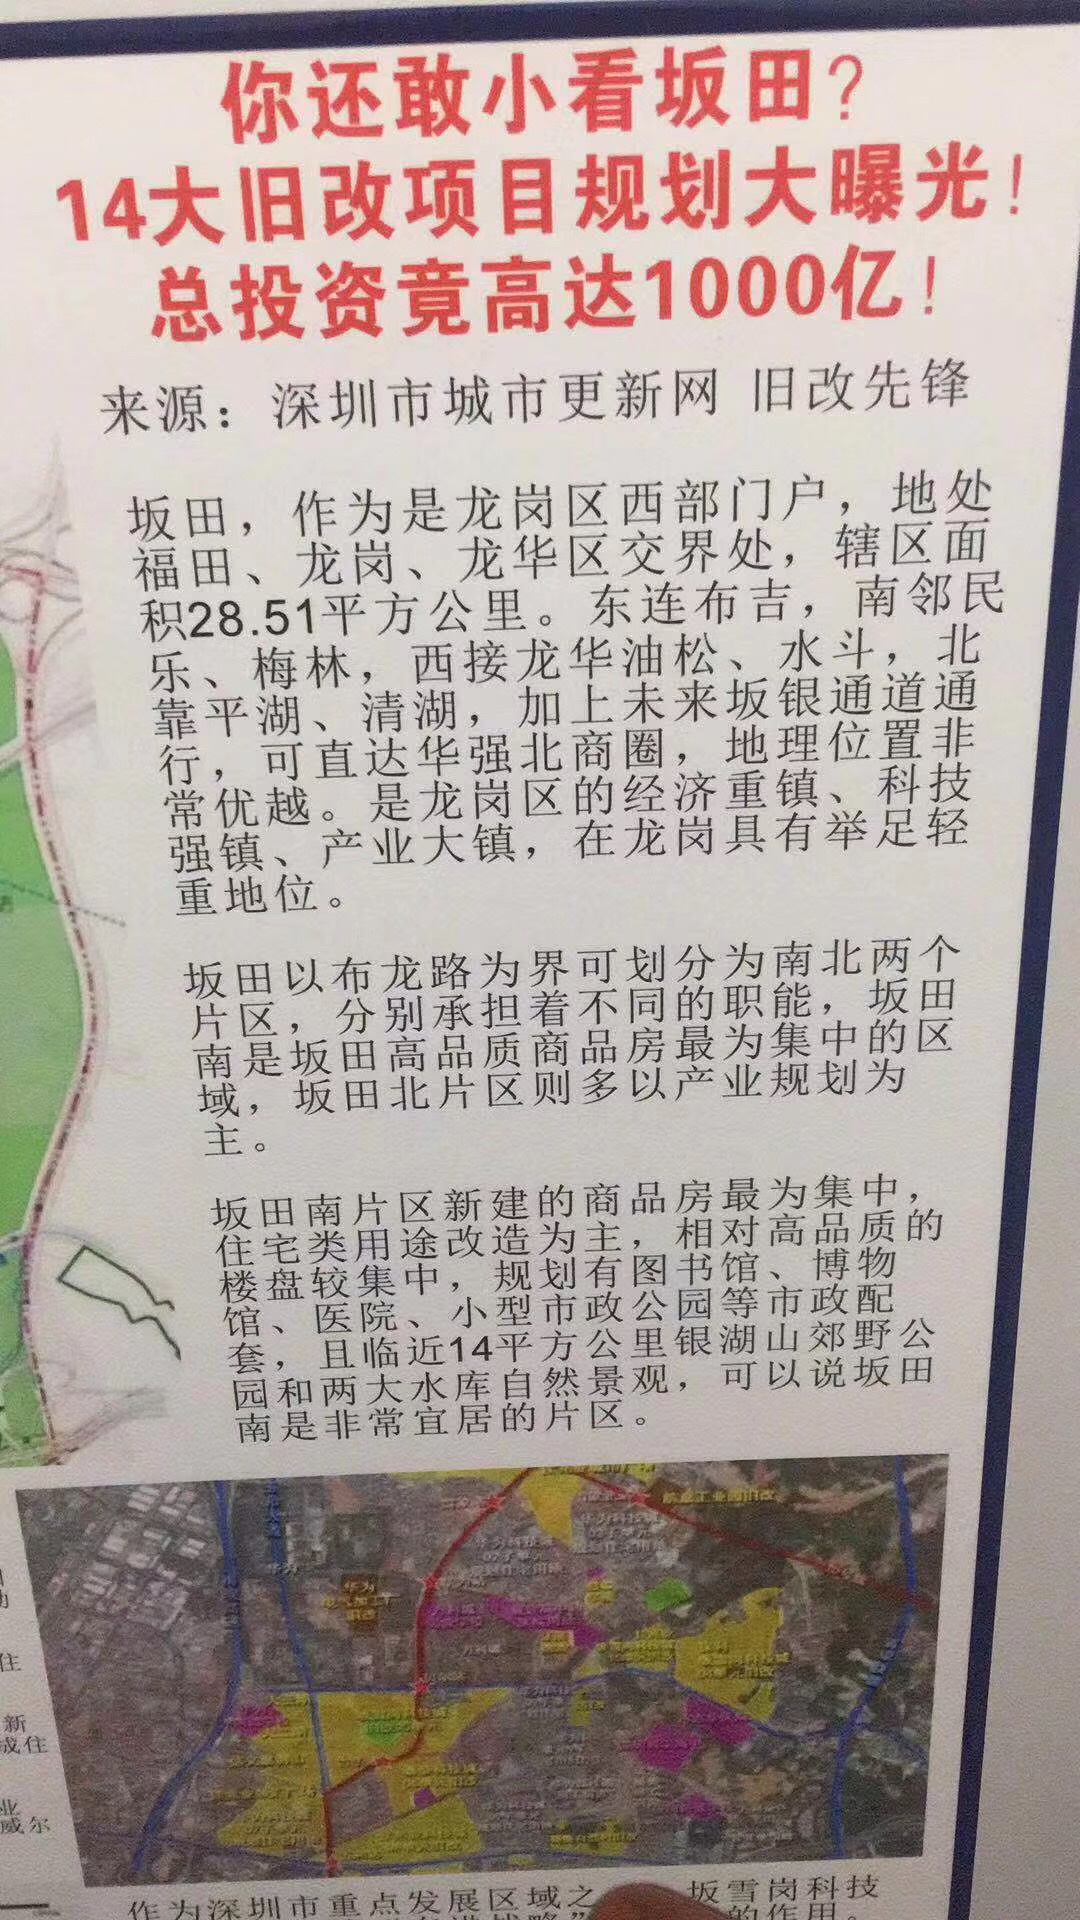 你还敢小看坂田?
14大旧改项目规划大曝光!
总投资竟高达1000亿!
来源：深圳市城市更新网 旧改先锋
坂田，作为是龙岗区西部门户，地处
福田、龙岗、龙华区交界处，辖区面
积28.51平方公里。东连布吉，南邻民
乐、梅林，西接龙华油松、水斗，北
靠平湖、清湖，加上未来坂银通道通
行，可直达华强北商圈，地理位置非
常优越。是龙岗区的经济重镇、科技
强镇、产业大镇，在龙岗具有举足轻
重地位。
坂田以布龙路为界可划分为南北两个
片区，分别承担着不同的职能，坂田
南是坂田高品质商品房最为集中的区
域，坂田北片区则多以产业规划为
主。
坂田南片区新建的商品房最为集中，
住宅类用途改造为主，相对高品质的
楼盘较集中，规划有图书馆、博物
馆、医院、小型市政公园等市政配
套，且临近14平方公里银湖山郊野公
园和两大水库自然景观，可以说坂田
南是非常宜居的片区。
住
新
成住
业
威尔
作为深圳市重点发展区域之
坂雪岗科技
的作用。